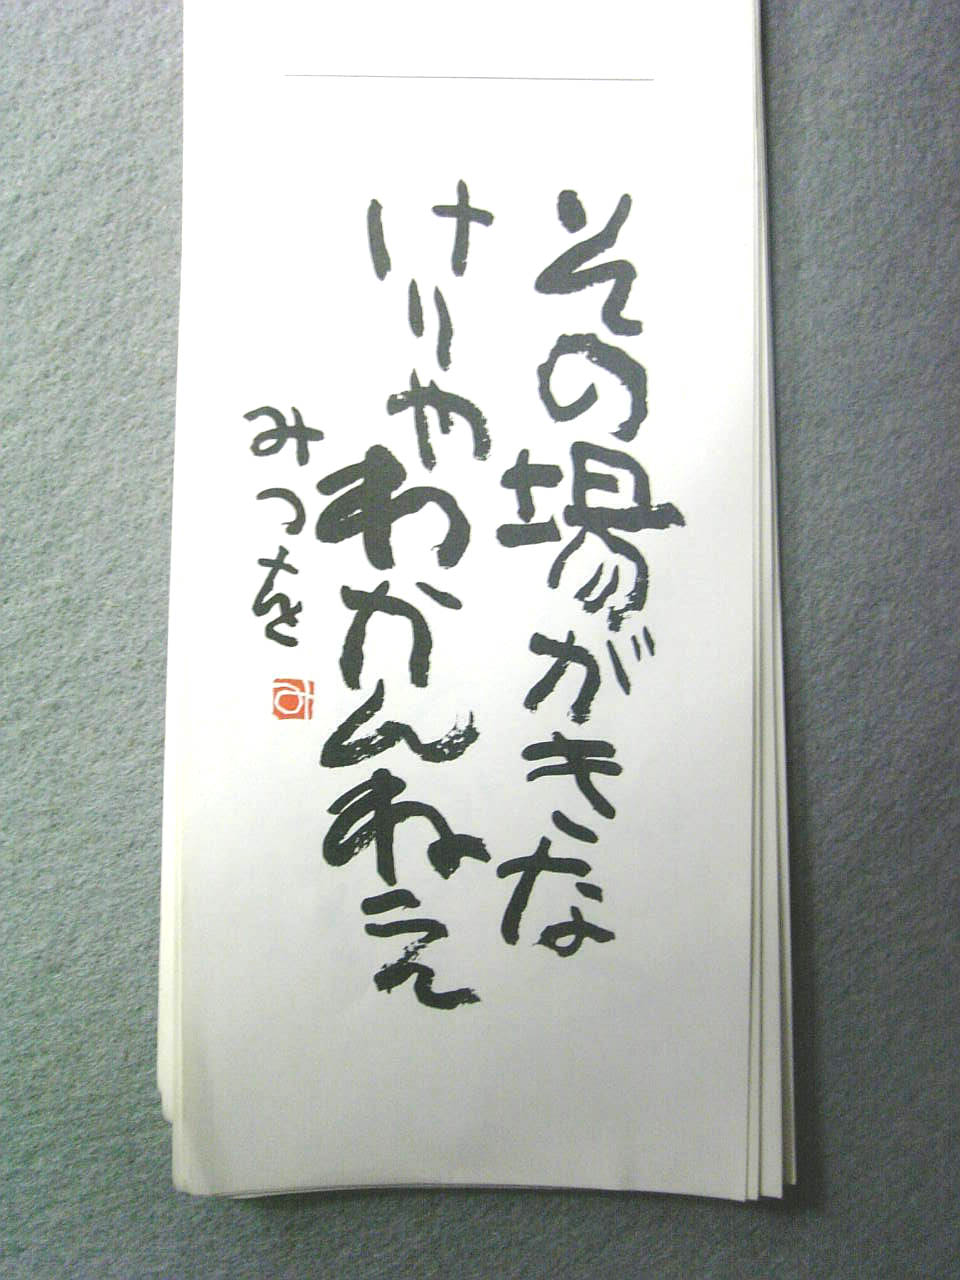 その場がきな
けりゃわかんねえ
みつを
み